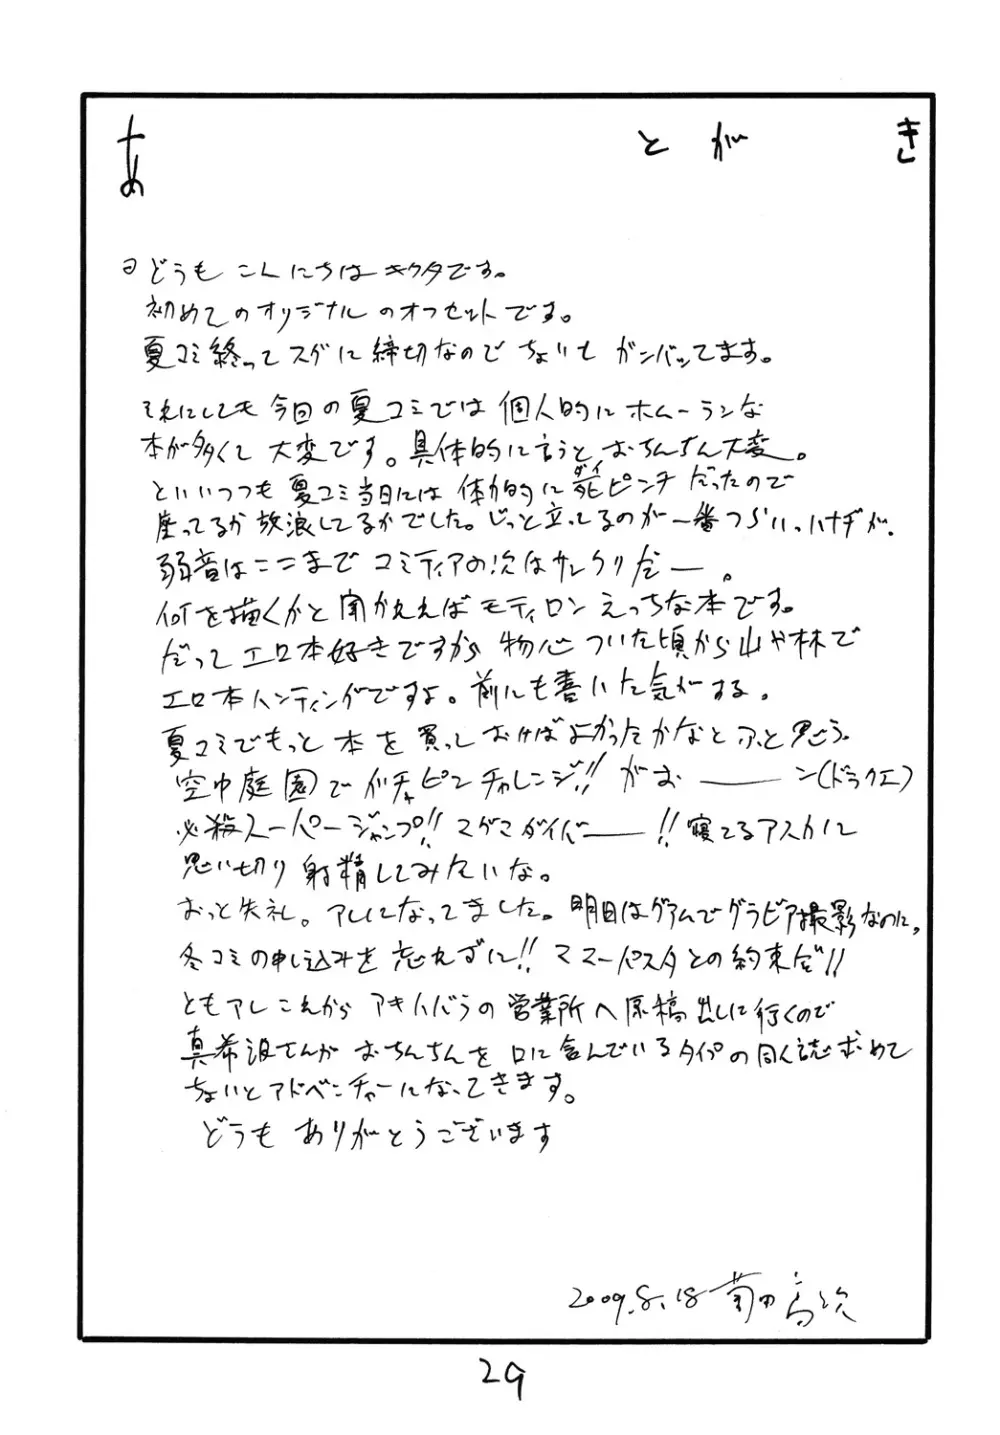 あとがき
どうもこんにちはキクタです。
初めてのオリジナルのオフセットです。
夏コミ終ってスグに締切なのでちょいとガンバッてます。
それにしても今回の夏コミでは個人的にホームランな
本が多くて大変です。具体的に言うとおちんちん大変。
といいつつも夏コミ当日には体力的に死ピンチだったので
ダイ
座ってるか放浪してるかでした。じっと立ってるのが一番つらい。ハナヂが。
弱音はここまで コミティアの次はサンクリだー。
何を描くかと聞かれればモティロンえっちな本です。
だってエロ本好きですから物心ついた頃から山や林で
エロ本ハンティングですよ。前にも書いた気がする。
夏コミでもっと本を買っておけばよかったかなとふと思う。
空中庭園でガチャピンチャレンジ!!がお――ン(ドラクエ)
必殺スーパージャンプ!!マグマダイバー――!!寝てるアスカに
思い切り射精してみたいな。
おっと失礼。アレになってました。明日はグアムでグラビア撮影なのに。
冬コミの申し込みを忘れずに!!ママーパスタとの約束だ!!
ともアレこれからアキハバラの営業所へ原稿出しに行くので
真希波さんがおちんちんを口に含んでいるタイプの同人誌求めて
ちょいとアドベンチャーになってきます。
どうもありがとうございます
2009.8.18 菊田高次
29